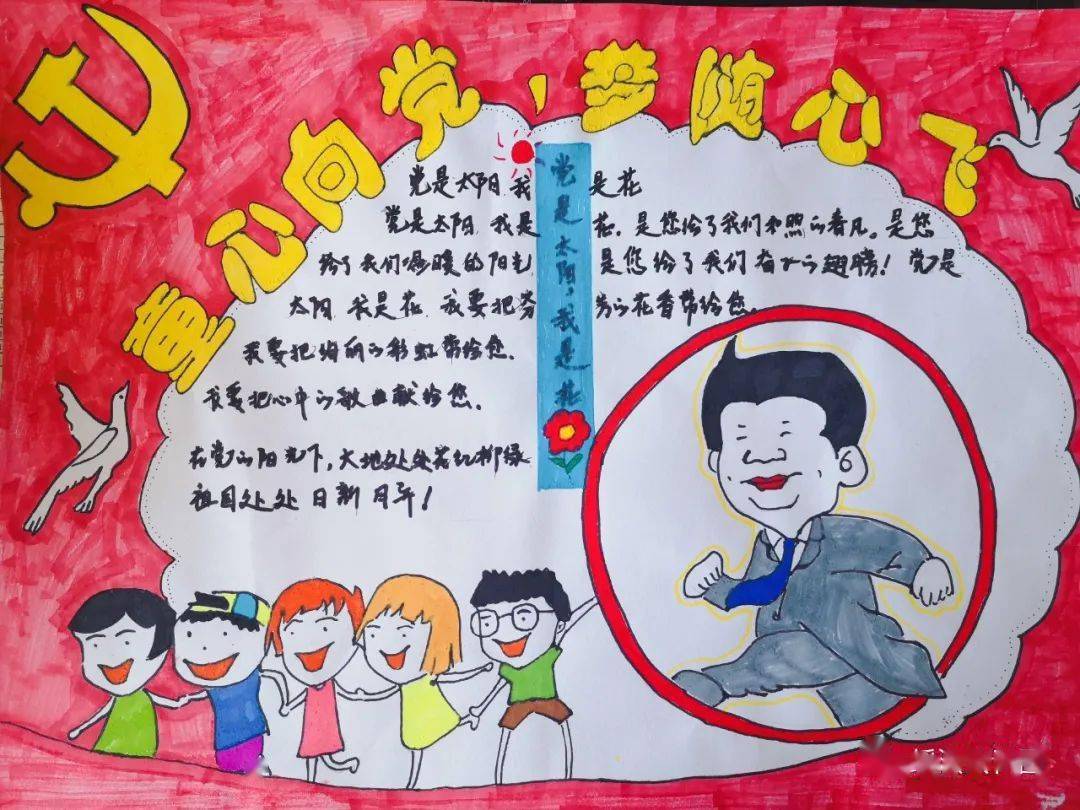 童心向党，梦随心飞
党是太阳，我是花
党是太阳 我是花
党是太阳 我是花，是您给了我们和煦的春风。是您
给了我们温暖的阳光 是您给了我们奋飞的翅膀！党是
太阳 我是花 我要把芬芳的花香带给您。
我要把绚丽的彩虹带给您.
我要把心中的歌曲献给您.
在党的阳光下，大地处处花红柳绿
祖国处处日新月异！